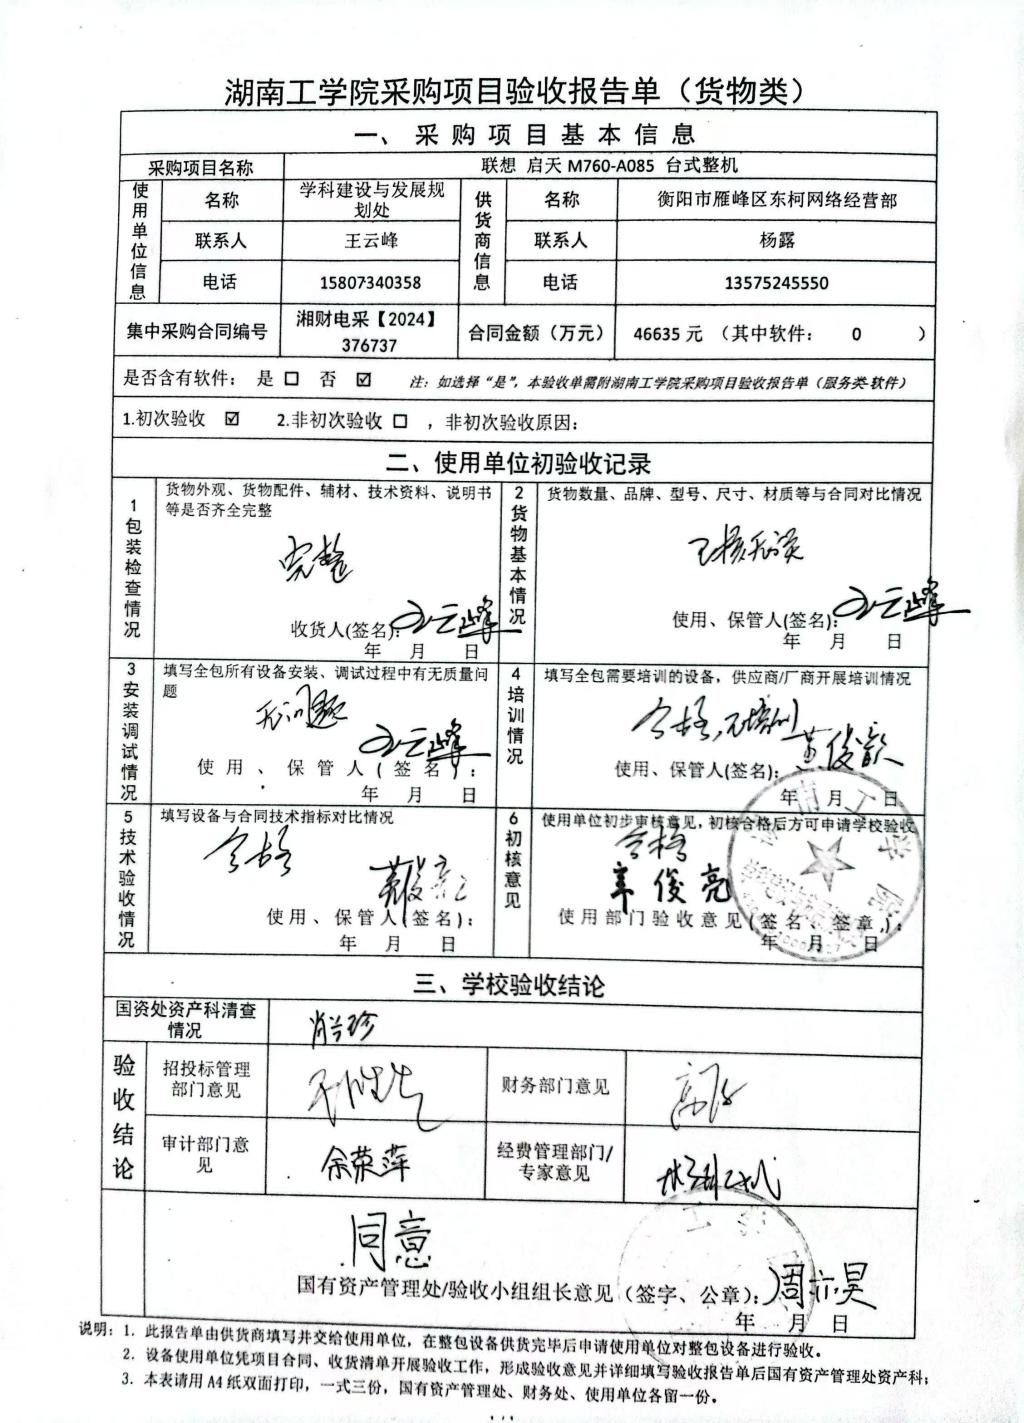 湖南工学院采购项目验收报告单（货物类）
一、采购项目基本信息
采购项目名称 联想 启天 M760-A085 台式整机
使用单位信息
名称 学科建设与发展规划处
联系人 王云峰
电话 15807340358
供货商信息
名称 衡阳市雁峰区东柯网络经营部
联系人 杨露
电话 13575245550
集中采购合同编号 湘财电采【2024】376737
合同金额（万元） 46635 元 （其中软件： 0 ）
是否含有软件： 是 □ 否 ☑ 注：如选择“是”，本验收单需附湖南工学院采购项目验收报告单（服务类-软件）
1.初次验收 ☑ 2.非初次验收 □ ，非初次验收原因：
二、使用单位初验收记录
1 包装检查情况
货物外观、货物配件、辅材、技术资料、说明书
等是否齐全完整
完整
收货人(签名)： 王云峰
年 月 日
2 货物基本情况
货物数量、品牌、型号、尺寸、材质等与合同对比情况
已核无误
使用、保管人(签名)： 王云峰
年 月 日
3 安装调试情况
填写全包所有设备安装、调试过程中有无质量问
题
无问题
王云峰
使用、保管人(签名)：
年 月 日
4 培训情况
填写全包需要培训的设备，供应商/厂商开展培训情况
合格，不培训
使用、保管人(签名)：
年 月 日
5 技术验收情况
填写设备与合同技术指标对比情况
合格
使用、保管人(签名)：
年 月 日
6 初核意见
使用单位初步审核意见，初核合格后方可申请学校验收
合格
章俊亮
使用部门验收意见(签名、签章，)：
年 月 日
三、学校验收结论
国资处资产科清查情况 肖兰珍
验收结论
招投标管理部门意见
财务部门意见
审计部门意见 余荣萍
经费管理部门/专家意见
同意
国有资产管理处/验收小组组长意见（签字、公章）：
年 月 日
说明：1. 此报告单由供货商填写并交给使用单位，在整包设备供货完毕后申请使用单位对整包设备进行验收。
2. 设备使用单位凭项目合同、收货清单开展验收工作，形成验收意见并详细填写验收报告单后国有资产管理处资产科；
3. 本表请用 A4 纸双面打印，一式三份，国有资产管理处、财务处、使用单位各留一份。